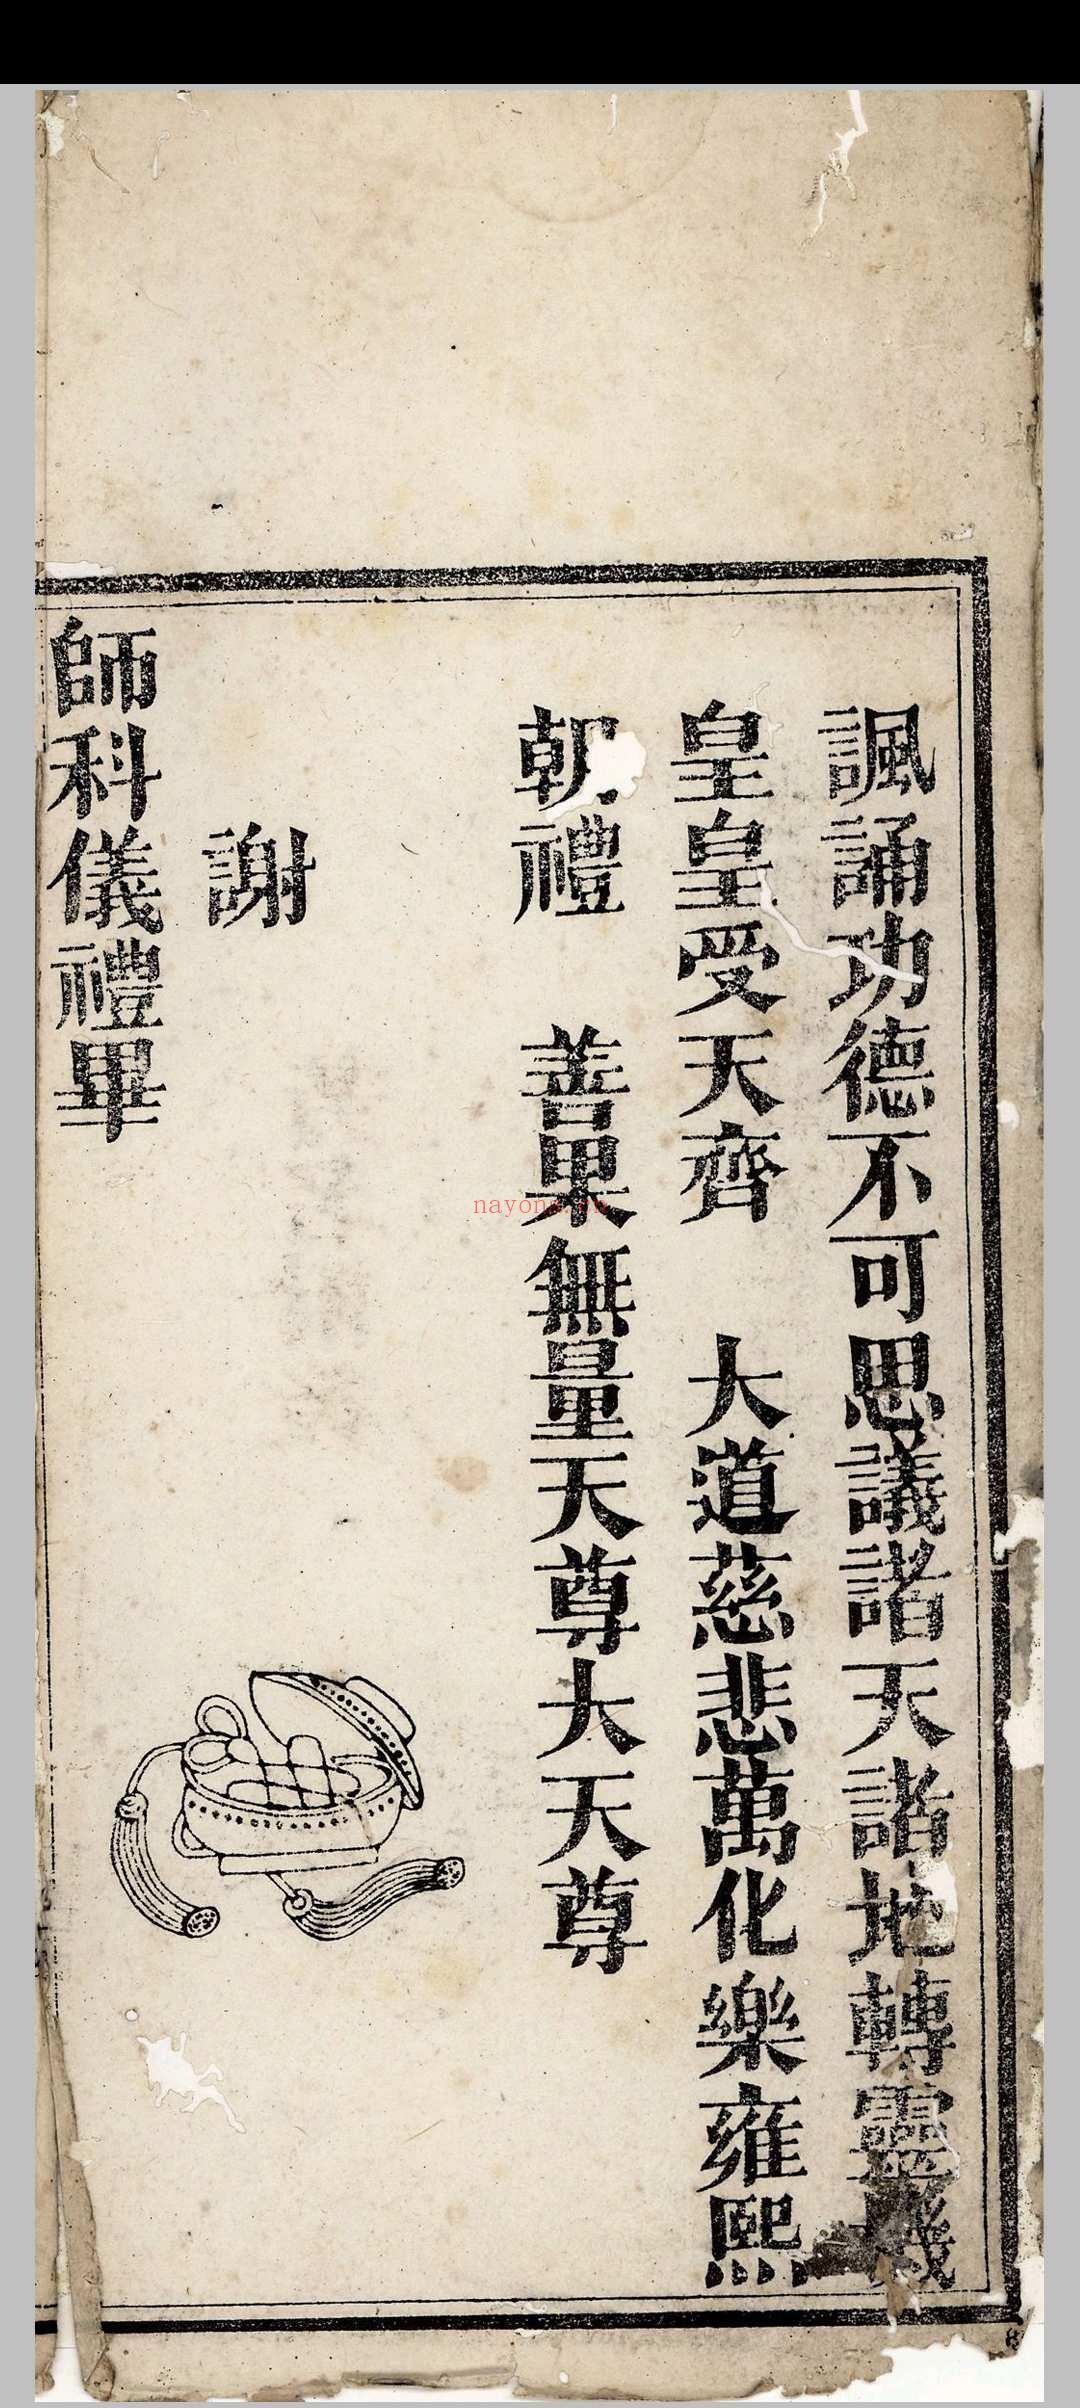 諷誦功德不可思議諸天諸地轉靈機
皇皇受天齊　大道慈悲萬化樂雍熙
朝禮　善果無量天尊大天尊
謝
師科儀禮畢
nayona.cn